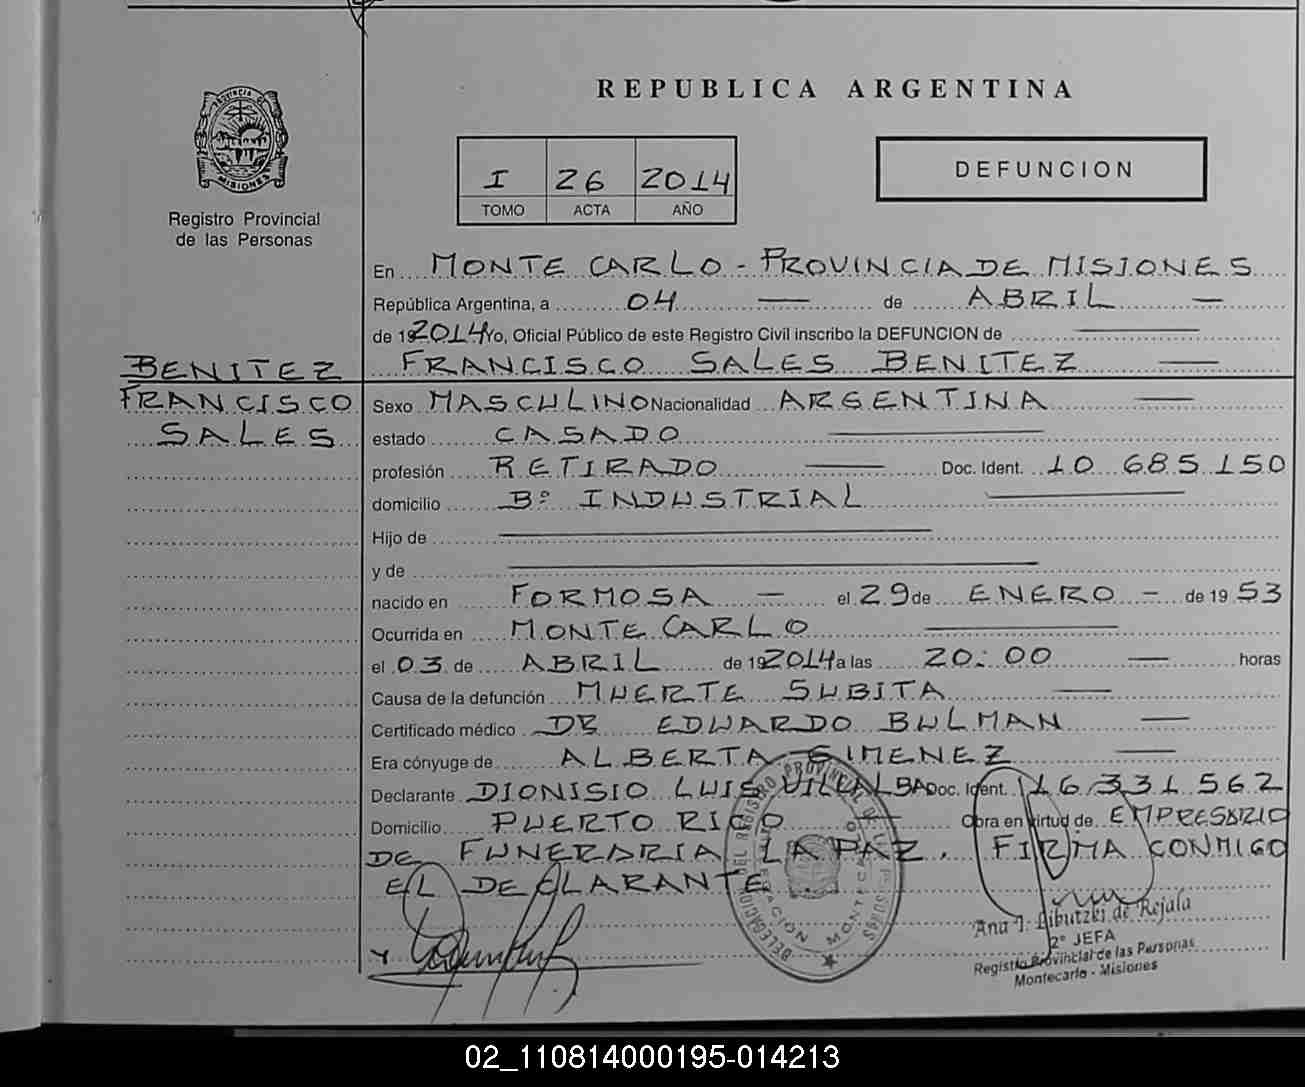 REPUBLICA ARGENTINA
PROVINCIA DE
MISIONES
Registro Provincial
de las Personas
I 26 2014
TOMO ACTA AÑO
DEFUNCION
En MONTE CARLO - PROVINCIA DE MISIONES
República Argentina, a 04 — de ABRIL —
de 192014 Yo, Oficial Público de este Registro Civil inscribo la DEFUNCION de —
BENITEZ
FRANCISCO
SALES
FRANCISCO SALES BENITEZ —
Sexo MASCULINO Nacionalidad ARGENTINA —
estado CASADO —
profesión RETIRADO — Doc. Ident. 10 685 150
domicilio Bº INDUSTRIAL —
Hijo de —
y de —
nacido en FORMOSA — el 29 de ENERO - de 19 53
Ocurrida en MONTE CARLO —
el 03 de ABRIL de 192014 a las 20:00 — horas
Causa de la defunción MUERTE SUBITA —
Certificado médico DR EDUARDO BULMAN —
Era cónyuge de ALBERTA GIMENEZ —
Declarante DIONISIO LUIS VILLALBA Doc. Ident. 16 331 562
Domicilio PUERTO RICO — Obra en virtud de EMPRESARIO
DE FUNERARIA LA PAZ. FIRMA CONMIGO
EL DECLARANTE
DELEGACION DEL REGISTRO PROVINCIAL DE LAS PERSONAS
MONTECARLO
Ana I. Libutzki de Rejala
2º JEFA
Registro Provincial de las Personas
Montecarlo - Misiones
02_110814000195-014213